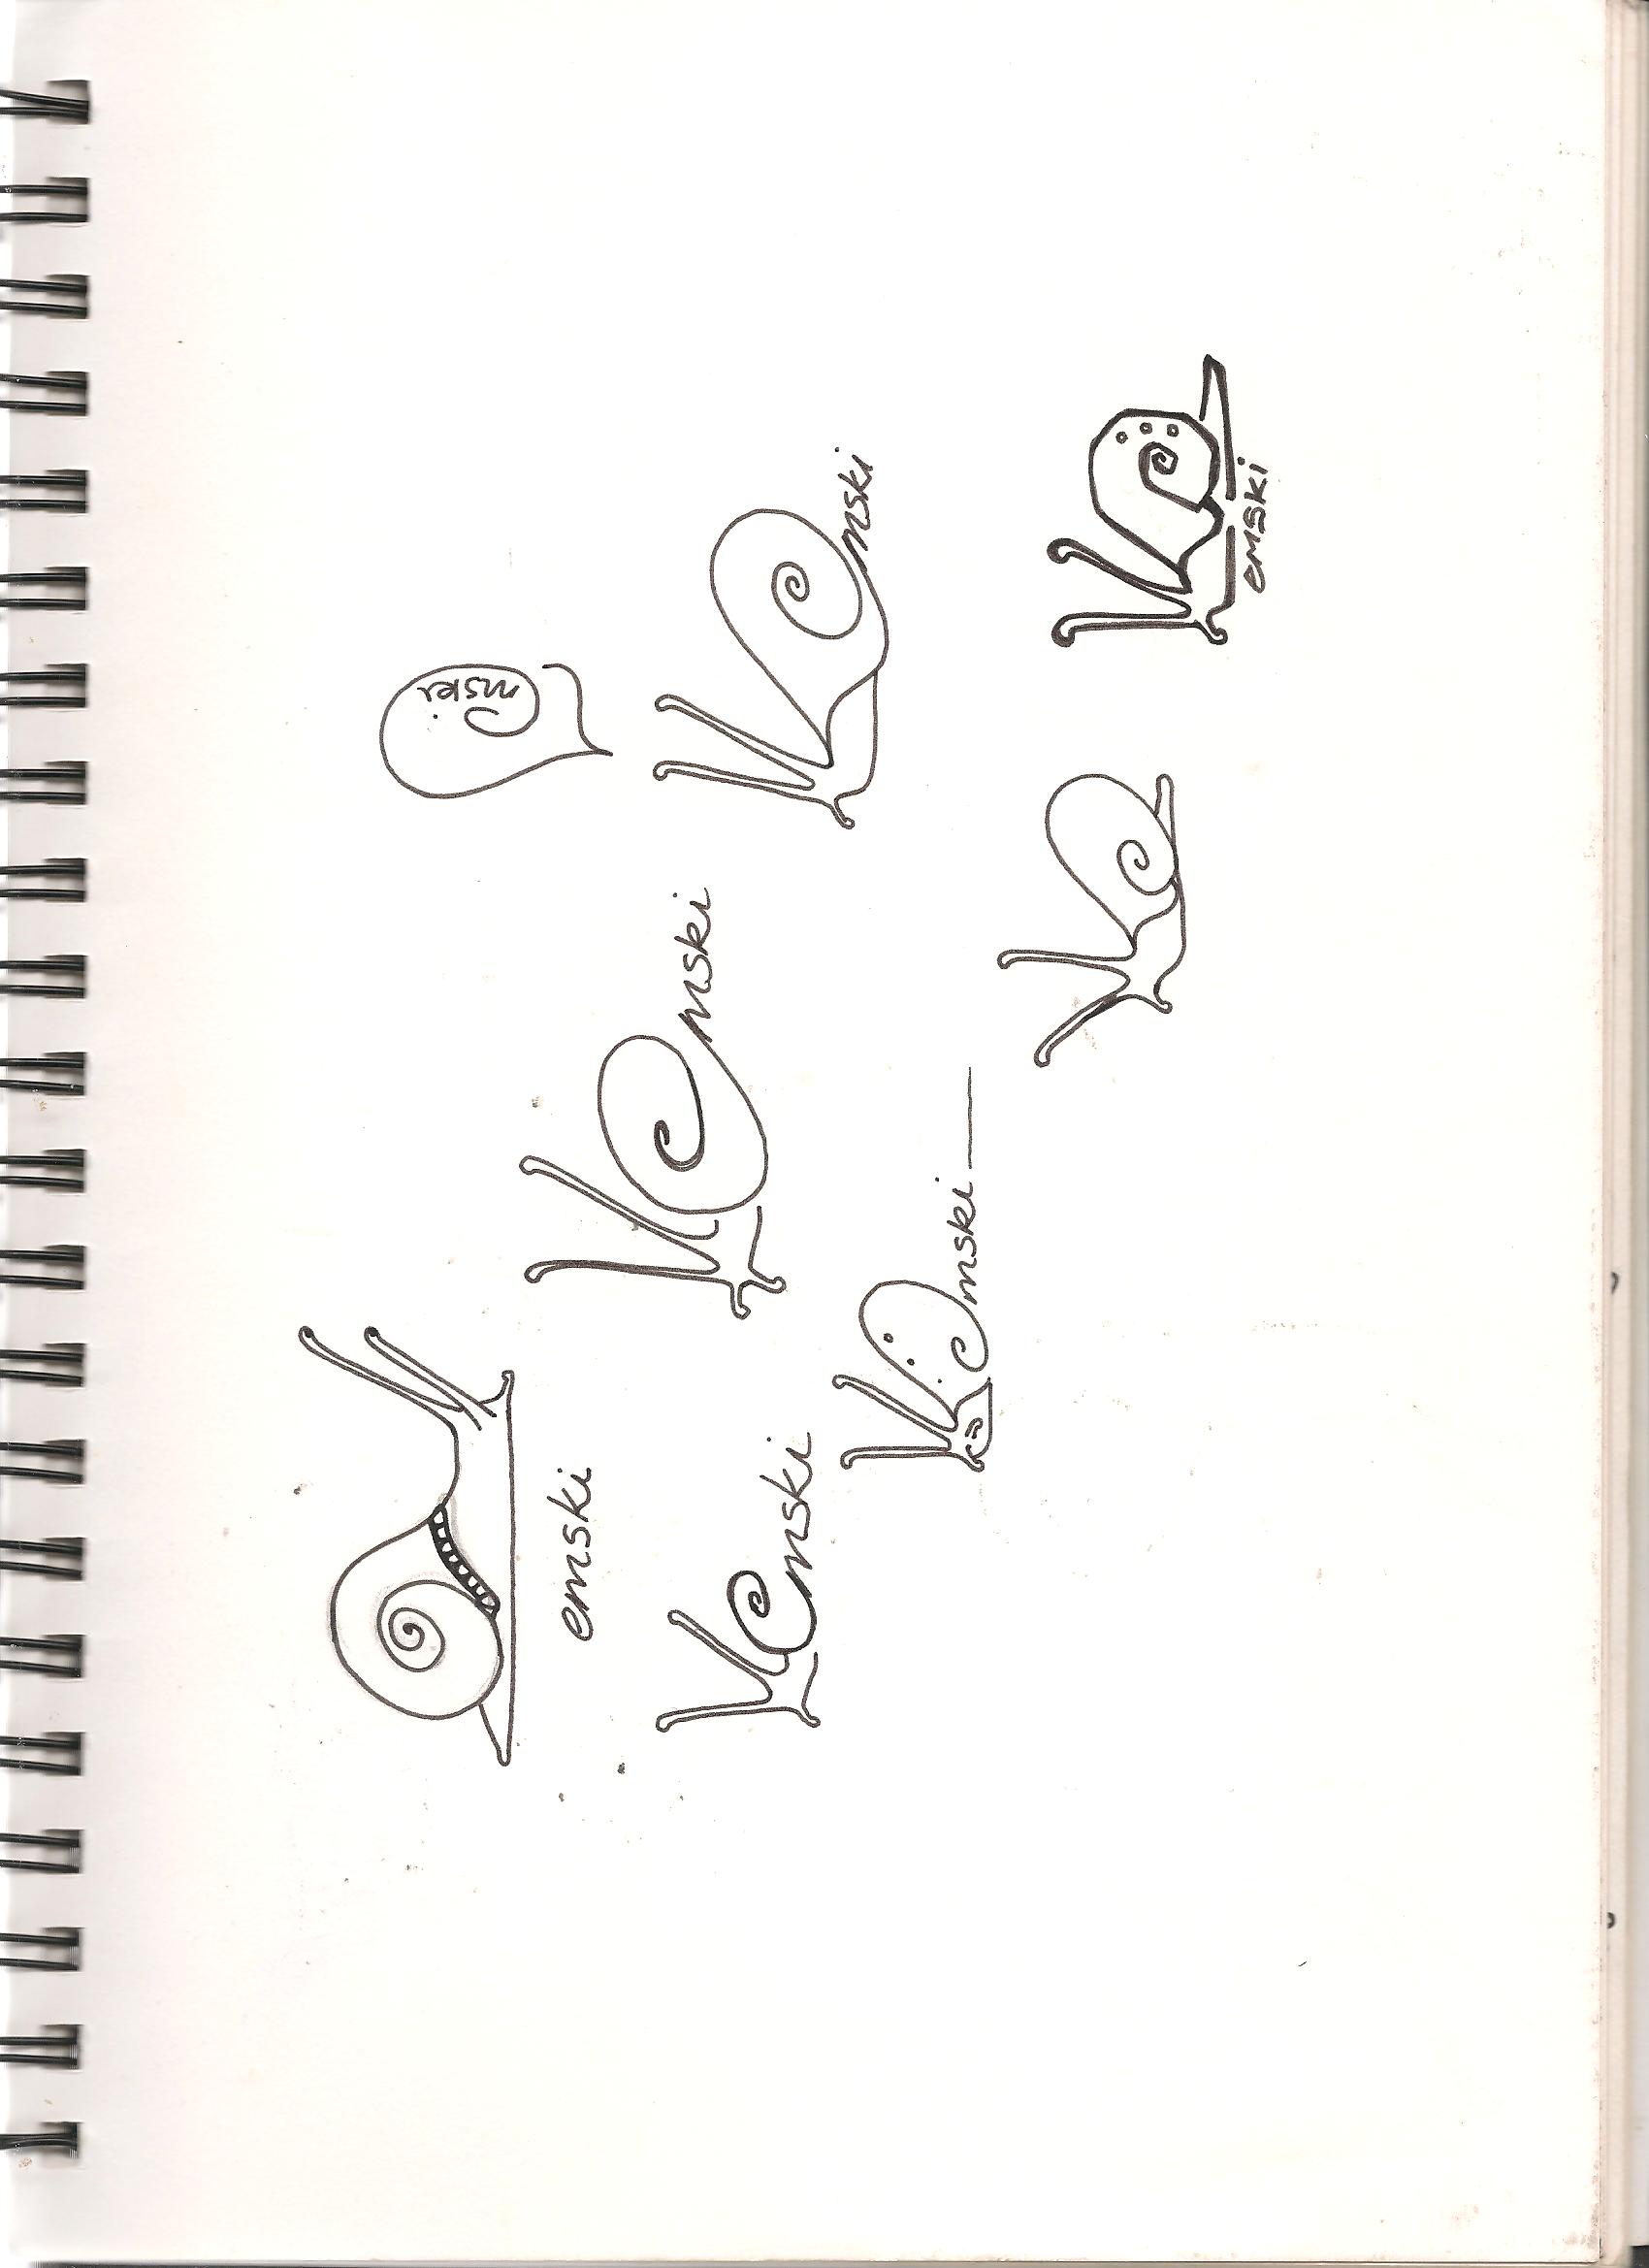 emski
emski
emski
emski
emski
emski
emski